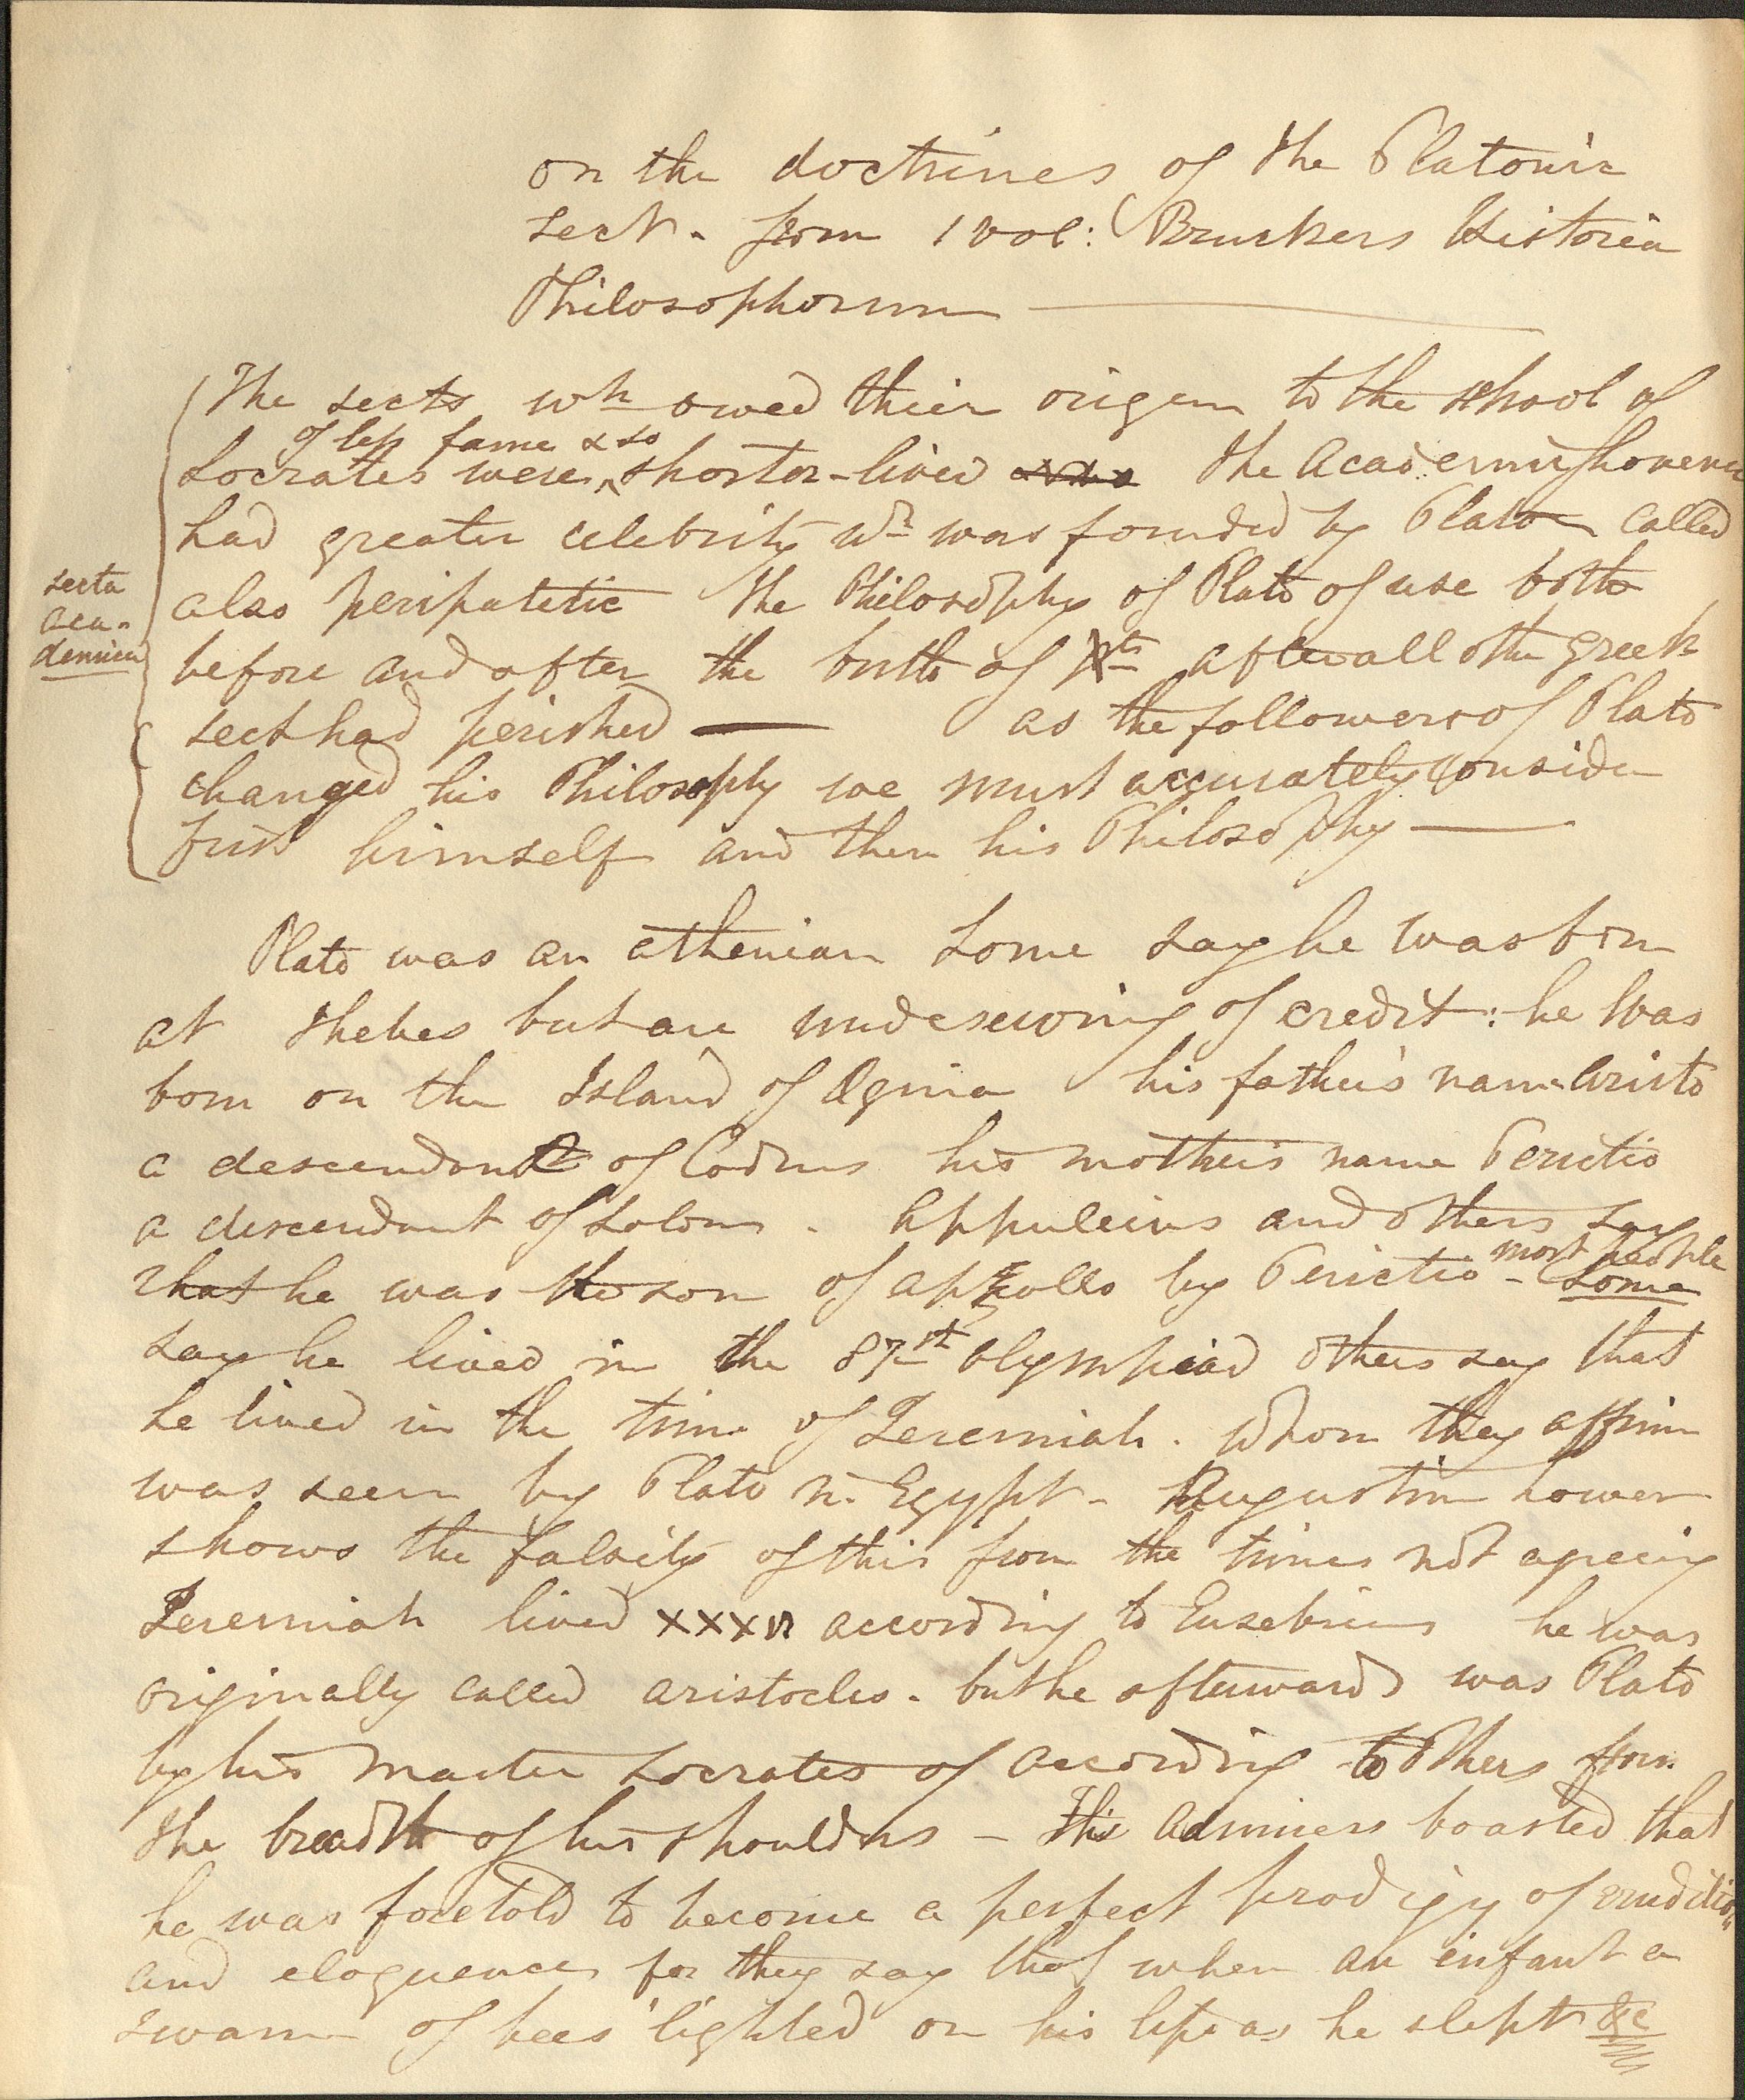 on the doctrines of the Platonic
sect - from 1 vol: Bruckers Historia
Philosophorum
The sects wh owed thier origen to the school of
of less fame & so
Socrates were ^ shorter-lived the Academy however
had greater celebrity wh was founded by Plato called
also peripatetic The Philosophy of Plato of use both
secta
aca-
demica
before and after the birth of Xts after all other greek
sect had perished as the followers of Plato
changed his Philosophy we must accurately consider
first himself and then his Philosophy
Plato was an athenian some say he was born
at thebes but are undeserving of credit: he was
born on the Island of Ægina his father's name Aristo
a descendant of Codrus his mother's name Perictio
a descendant of Solon - Appuleius and others say
most people
that he was the son of apollo by Perictio - some
say he lived in the 87st olympiad others say that
he lived in the time of Jeremiah. Whom they affirm
was seen by Plato in Egypt - Augustin hower
shows the falsity of this from the times not agreeing
Jeremiah lived according to Eusebius he was
originally called aristocles - but he afterwards was Plato
by his master Socrates of according to others from
the breadth of his shoulders - His admirers boasted that
he was foretold to become a perfect prodigy of erudition
and eloquence for they say that when an infant a
swarm of bees lighted on his lips as he slept &c